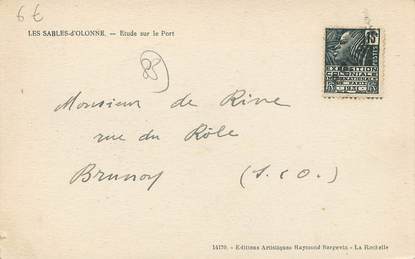 9 €
LES SABLES-d'OLONNE. — Etude sur le Port
85
POSTES
EXPOSITION
COLONIALE
INTERNATIONALE
DE PARIS
1931
Monsieur de Rive
rue du Rôle
Brunoy (S. & O.)
14170. - Editions Artistiques Raymond Bergevin - La Rochelle